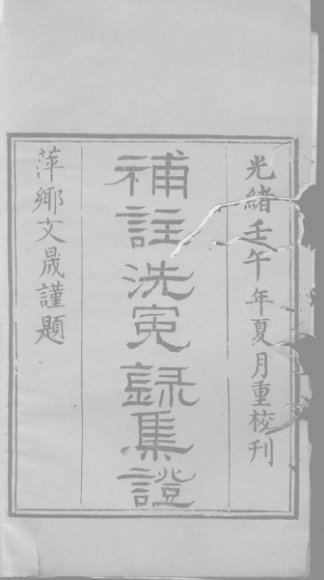 光緒壬午年夏月重校刊
補註洗冤錄集證
萍鄉文晟謹題